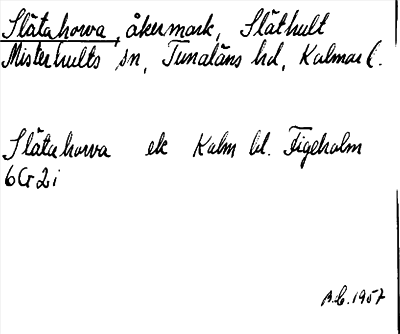 Slätahorva, åkermark, Släthult
Misterhults sn, Tunaläns hd, Kalmar l.
Slätahorva ek Kalm bl. Figeholm
6G2i
A.C. 1957